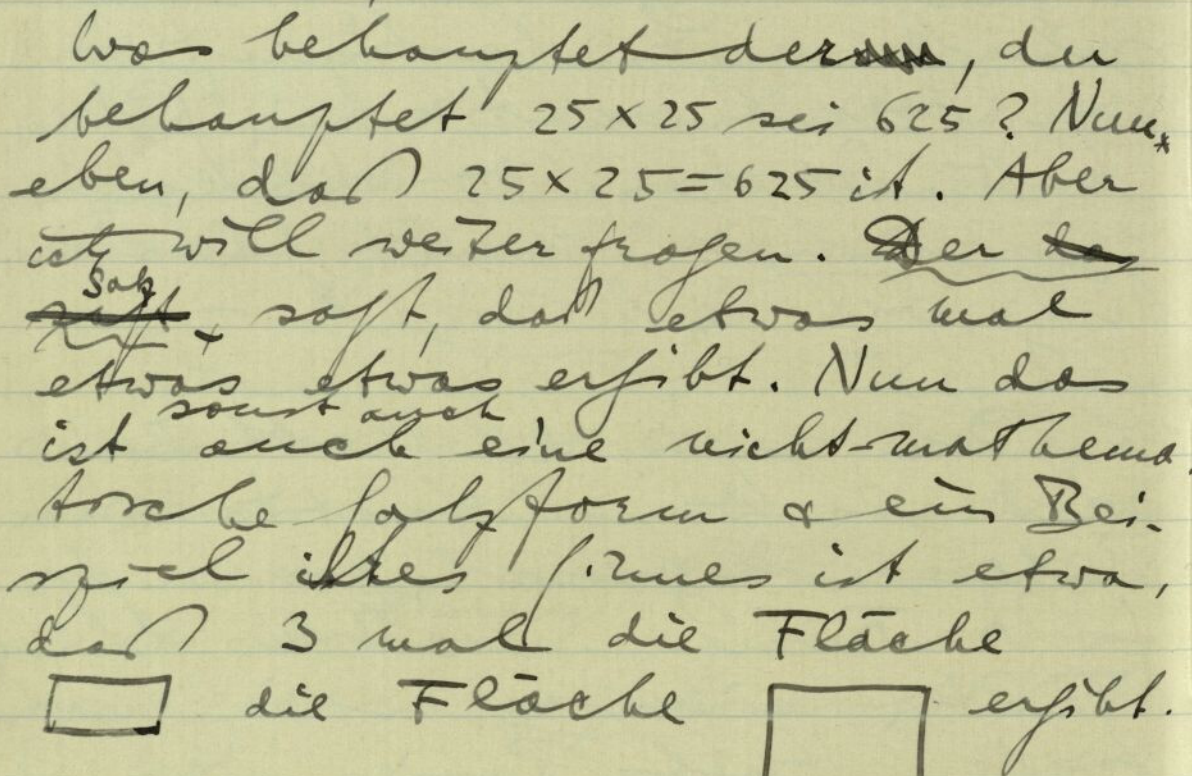 Was behauptet der, der
behauptet 25×25 sei 625? Nun
eben, daß 25×25=625 ist. Aber
ich will weiter fragen. Der
Satz
sagt, daß etwas mal
etwas etwas ergibt. Nun das
sonst auch
ist auch eine nicht-mathema-
tische Satzform & ein Bei-
spiel ihres Sinnes ist etwa,
daß 3 mal die Fläche
die Fläche ergibt.